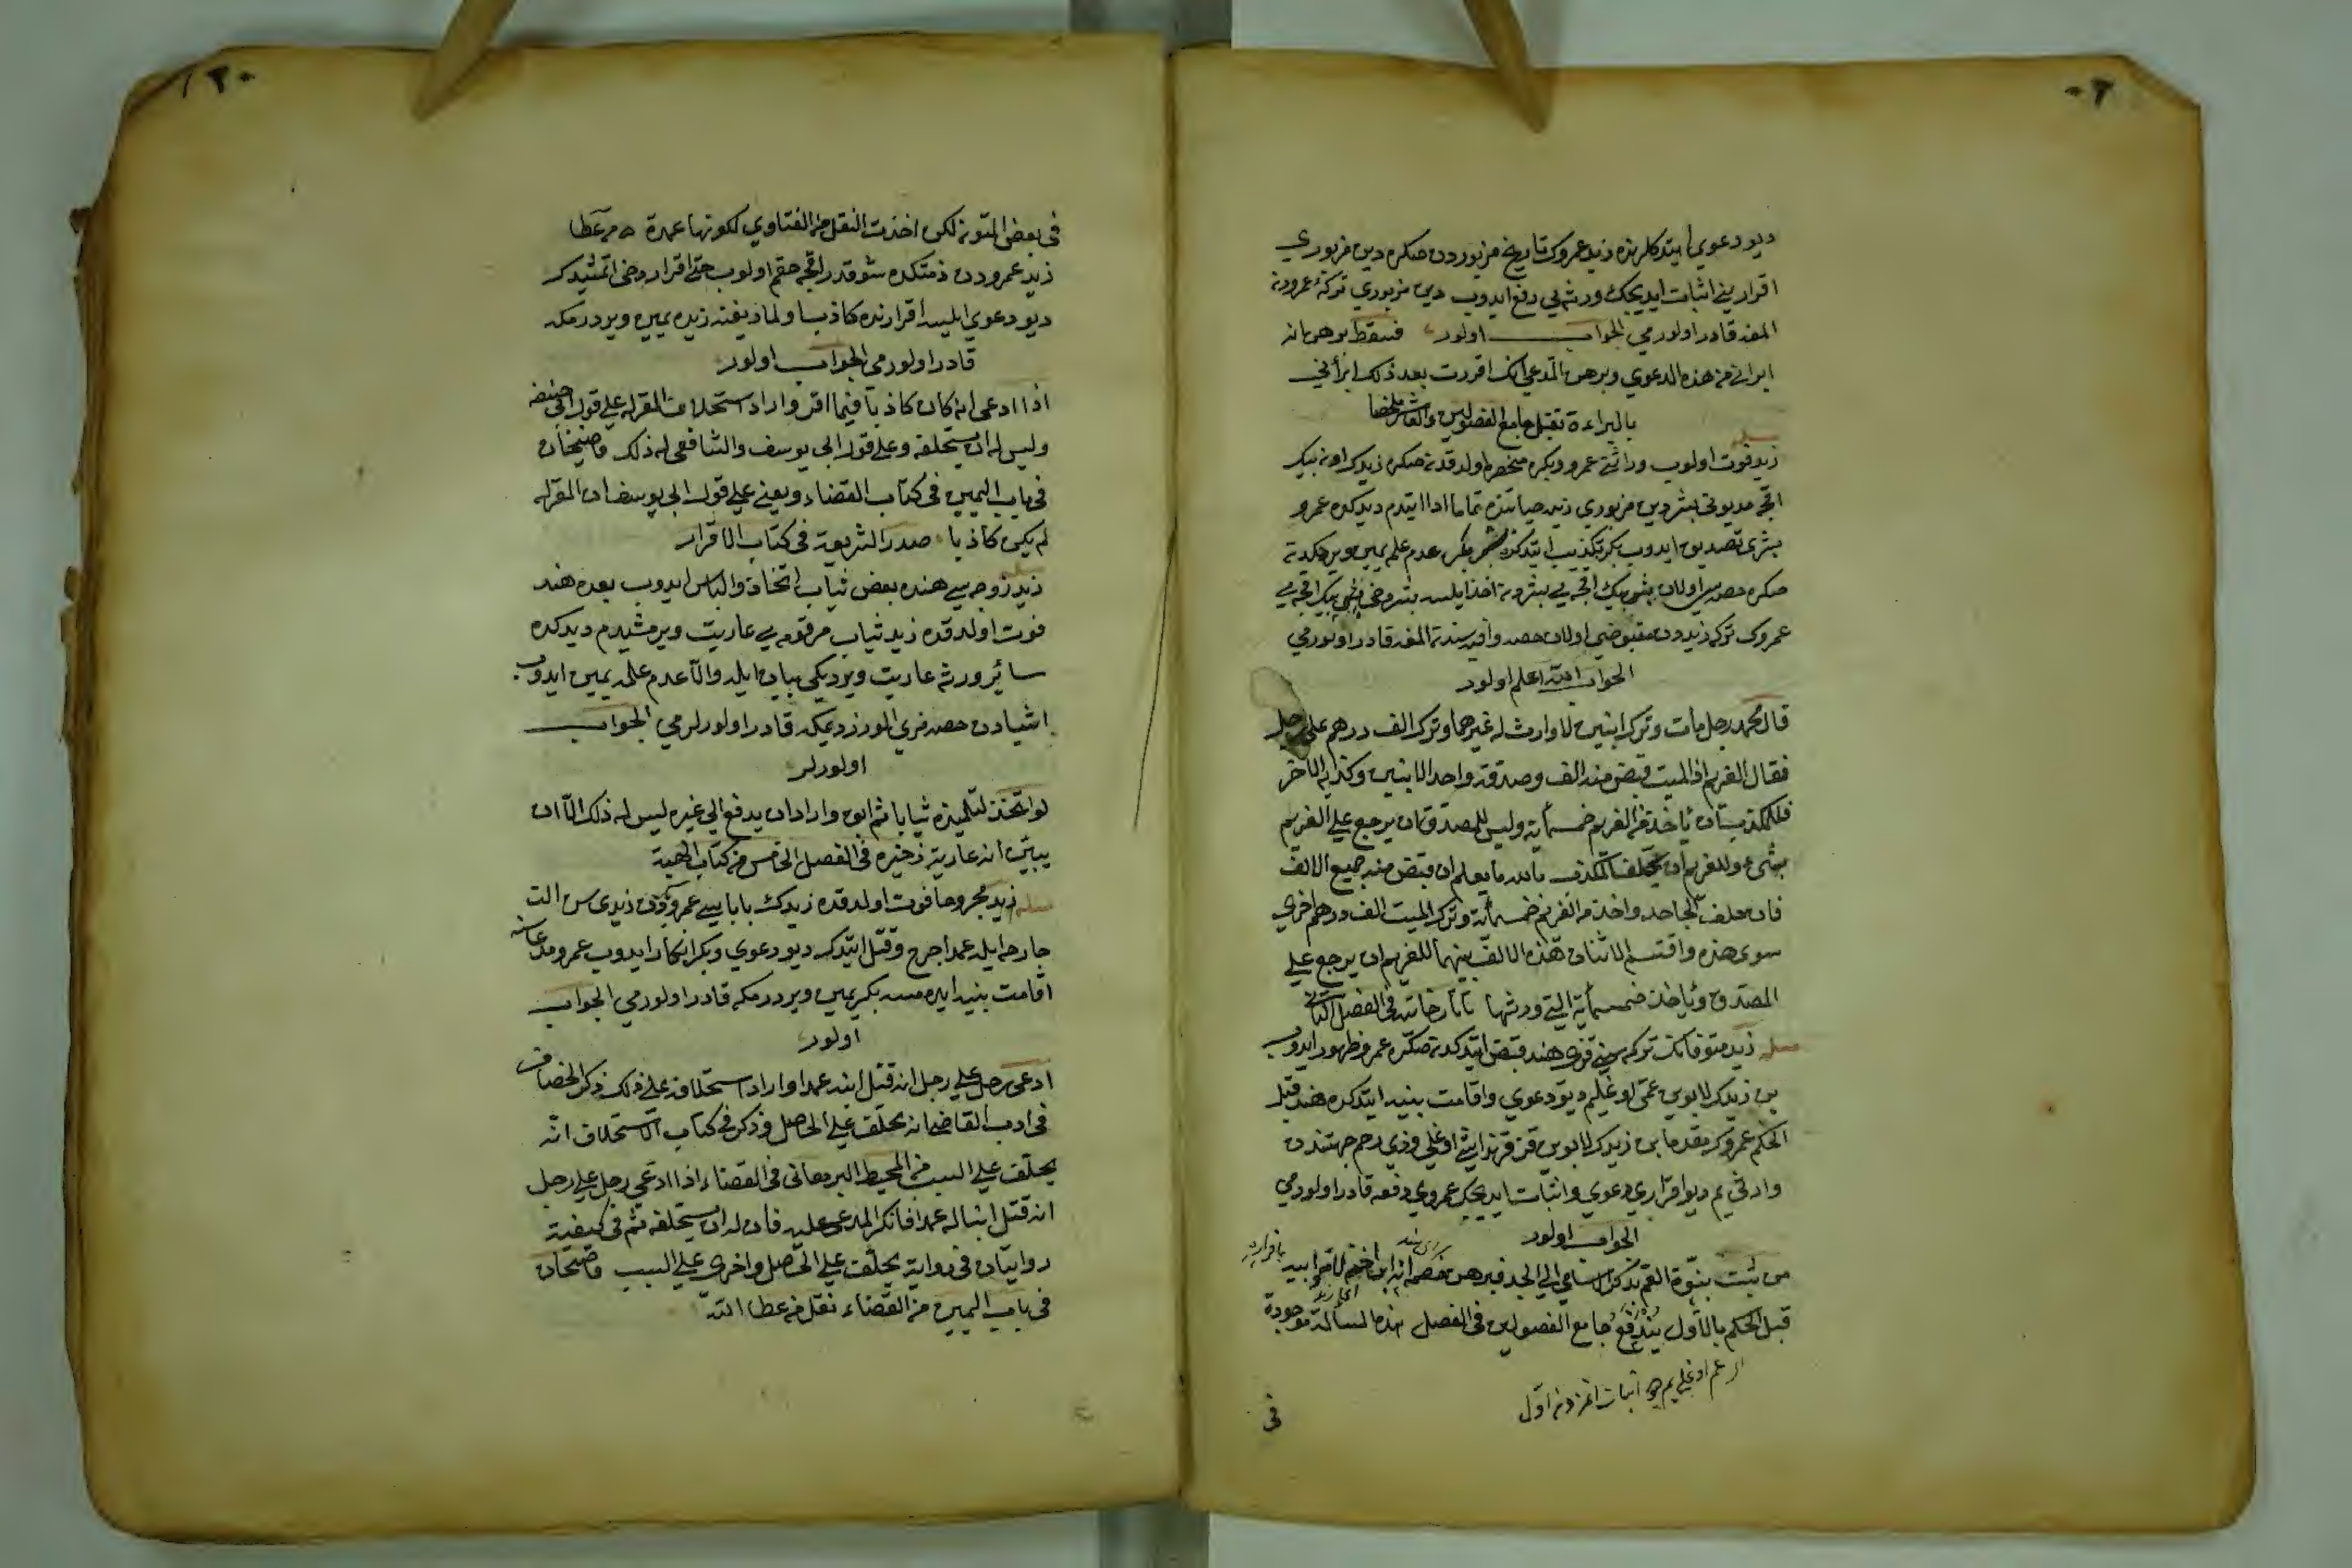 ديو دعوي ايتدكلرنده زيد عمروك تاريخ مزبوردن صكره دين مزبوري
اقرارينى اثبات ايديجك ورثه يي دفع ايدوب دين مزبوري تركهٔ عمرودن
المغه قادر اولورمي الجواب اولور فيسقط برهن انه
ابراني من هذه الدعوي وبرهن المدعي انك اقررت بعد ذلك ابرأني
بالبراءة تقبل جامع الفصولين والعاشر ملخصا
زيد فوت اولوب وراثتي عمرو وبكره منحصره اولدقدن صكره زيدك اون بيك
اقچه مديوني بشر دين مزبوري زيد حياتنده تماما ادا ايتدم ديدكده عمرو
بشري تصديق ايدوب بكر تكذيب ايتدكده بشر بكره عدم علمه يمين ويرجكدن
صكره حصه سي اولان بش بيك اقچه يي بشردن اخذ ايلسه بشر دخي بش بيك اقچه يي
عمروك تركه زيددن مقبوضي اولان حصه وافره سندن المغه قادر اولورمي
الجواب الله اعلم اولور
قال محمد رجل مات وترك ابنين لا وارث له غيرهما وترك الف درهم على رجل
فقال الغريم ان الميت قبض منه الف وصدقه واحد الابنين وكذبه الآخر
فللمكذب ان يأخذ من الغريم خمسمائة وليس للمصدق ان يرجع على الغريم
بشيء وللغريم ان يحلف المكذب بالله ما يعلم ان قبض منه جميع الالف
فان حلف الجاحد واخذ من الغريم خمسمائة وترك الميت الف درهم اخري
سوى هذه واقتسم الاثنان هذه الالف بينهما للغريم ان يرجع على
المصدق ويأخذ خمسمائة التي ورثها تاتارخانيه في الفصل الثاني
مسئله زيد متوفانك تركه سني قزي هند قبض ايتدكدن صكره عمرو ظهور ايدوب
بن زيدك لابوين عمي اوغليم ديو دعوي واقامت بينه ايتدكده هند قبل
الحكم عمروك مقدما بن زيدك لابوين قز قرنداشي اوغلي وذي رحم جهتندن
وارثي يم ديو اقراري دعوي واثبات ايديجك عمروي دفعه قادر اولورمي
الجواب اولور
من ثبت بنوة العم بذكر اسامي الي الجد فبرهن خصمه انه ابن اخته لام وابيه باقراره
قبل الحكم بالاول يندفع جامع الفصولين في الفصل هذه المسألة موجودة
عم اوغلي يم اثبات اتمزدن اول
في
في بعض المتون لكن اخذت النقل من الفتاوي لكونها عمدة من عطا
زيد عمرودن ذمتكده شو قدر اقچه حقم اولوب حتى اقرار دخي اتمشيدك
ديو دعوي ايليسه اقرارنده كاذب اولماديغنه زيده يمين ويردرمكه
قادر اولورمي الجواب اولور
اذا ادعى انه كان كاذبا فيما اقر واراد استحلاف المقر له على قول ابي حنيفه
وليس له ان يستحلفه وعلى قول ابي يوسف والشافعي له ذلك قاضيخان
في باب اليمين في كتاب القضاء ويفتي على قول ابي يوسف ان المقر له
لم يكن كاذبا صدر الشريعة في كتاب الاقرار
زيد زوجه سي هنده بعض ثياب اتخاذ والباس ايدوب بعده هند
فوت اولدقده زيد ثياب مرقومه يي عاريت ويرمشيدم ديدكده
سائر ورثه عاريت ويرديكي بيان ايله والا عدم علمه يمين ايدوب
اشيادن حصه مزي الورز ديمكه قادر اولورلرمي الجواب
اولورلر
لو اتخذ لتلميذه ثيابا ثم ابق واراد ان يدفع الي غيره ليس له ذلك الا ان
يبين انه عارية ذخيره في الفصل الخامس من كتاب الهبة
مسئله زيد مجروحا فوت اولدقده زيدك باباسي عمرو بكردن زيدي سن الت
جارحه ايله عمدا جرح وقتل ايتدك ديو دعوي وبكر انكار ايدوب عمرو مدعاسنه
اقامت بينه ايده مسه بكره يمين ويردرمكه قادر اولورمي الجواب
اولور
ادعى رجل على رجل انه قتل ابنه عمدا واراد استحلافه على ذلك ذكر الخصاف
في ادب القاضي انه يحلف على الحاصل وذكر في كتاب الاستحلاف انه
يحلف على السبب من المحيط البرهاني في القضاء اذا ادعى رجل على رجل
انه قتل ابنا له عمدا فانكر المدعى عليه فان له ان يستحلفه ثم في كيفية
روايتان في رواية يحلف على الحاصل واخرى على السبب قاضيخان
في باب اليمين من القضاء نقل من عطا الله